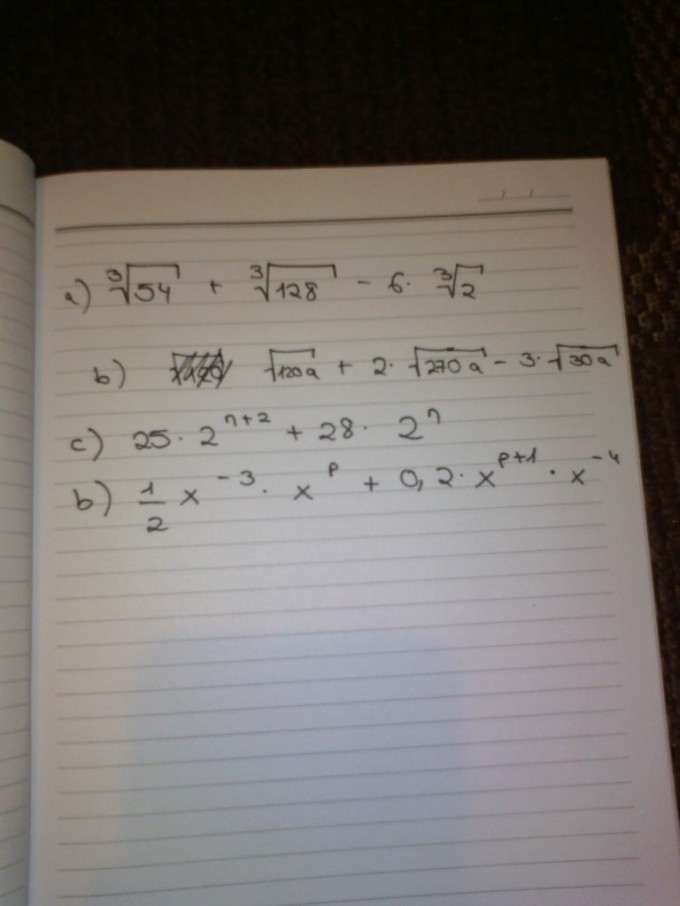 a) ∛54 + ∛128 - 6·∛2
b) √120a + 2·√270a - 3·√30a
c) 25·2ⁿ⁺² + 28·2ⁿ
b) 1/2 x⁻³·xᵖ + 0,2·xᵖ⁺¹·x⁻⁴